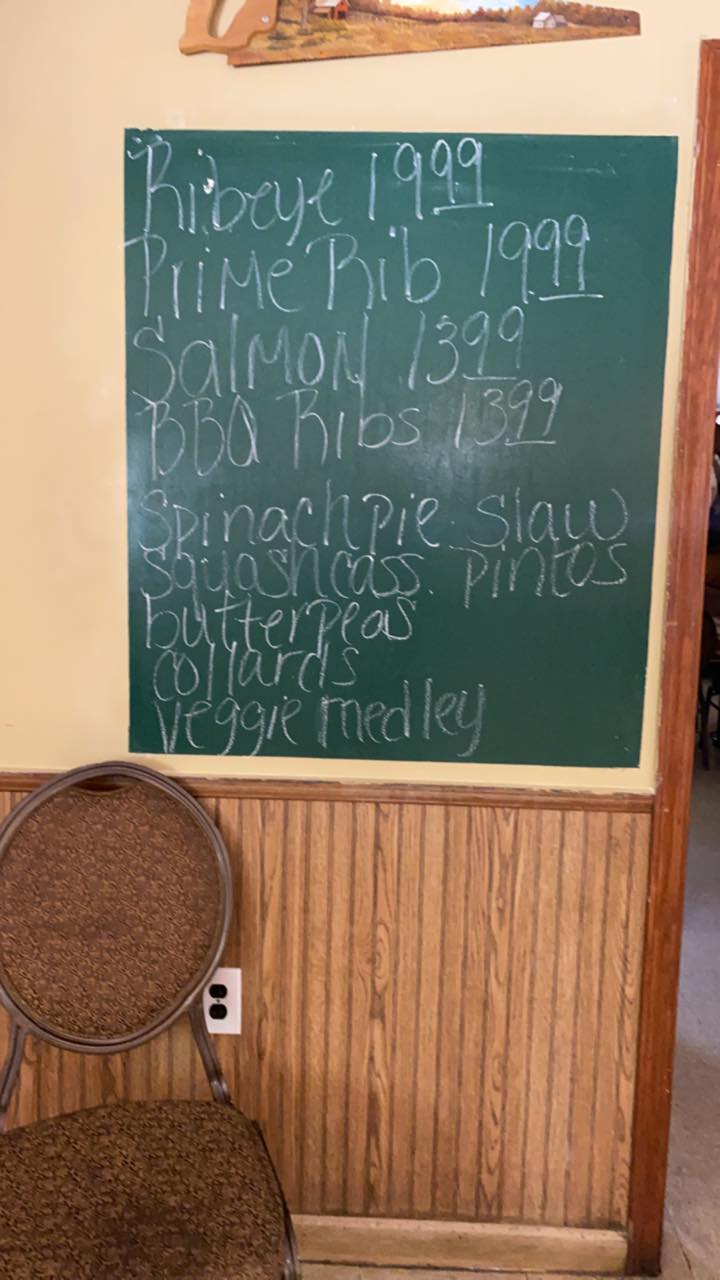 Ribeye 1999
Prime Rib 1999
Salmon 1399
BBQ Ribs 1399
Spinach pie slaw
squash cass. pintos
butterpeas
collards
veggie medley